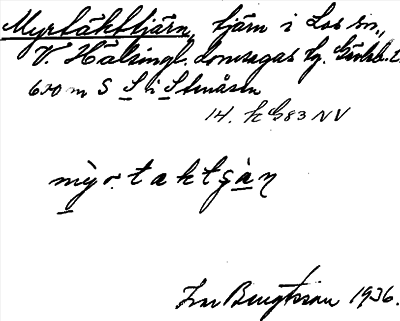 Myrtäkttjärn, tjärn i Los sn.,
V. Hälsingl. domsagas tg. Gävleb. l.
650 m S S i Stenåsen
14. h G83 NV
mỳr. t a k t g à n
Ivar Bengtsson 1936.